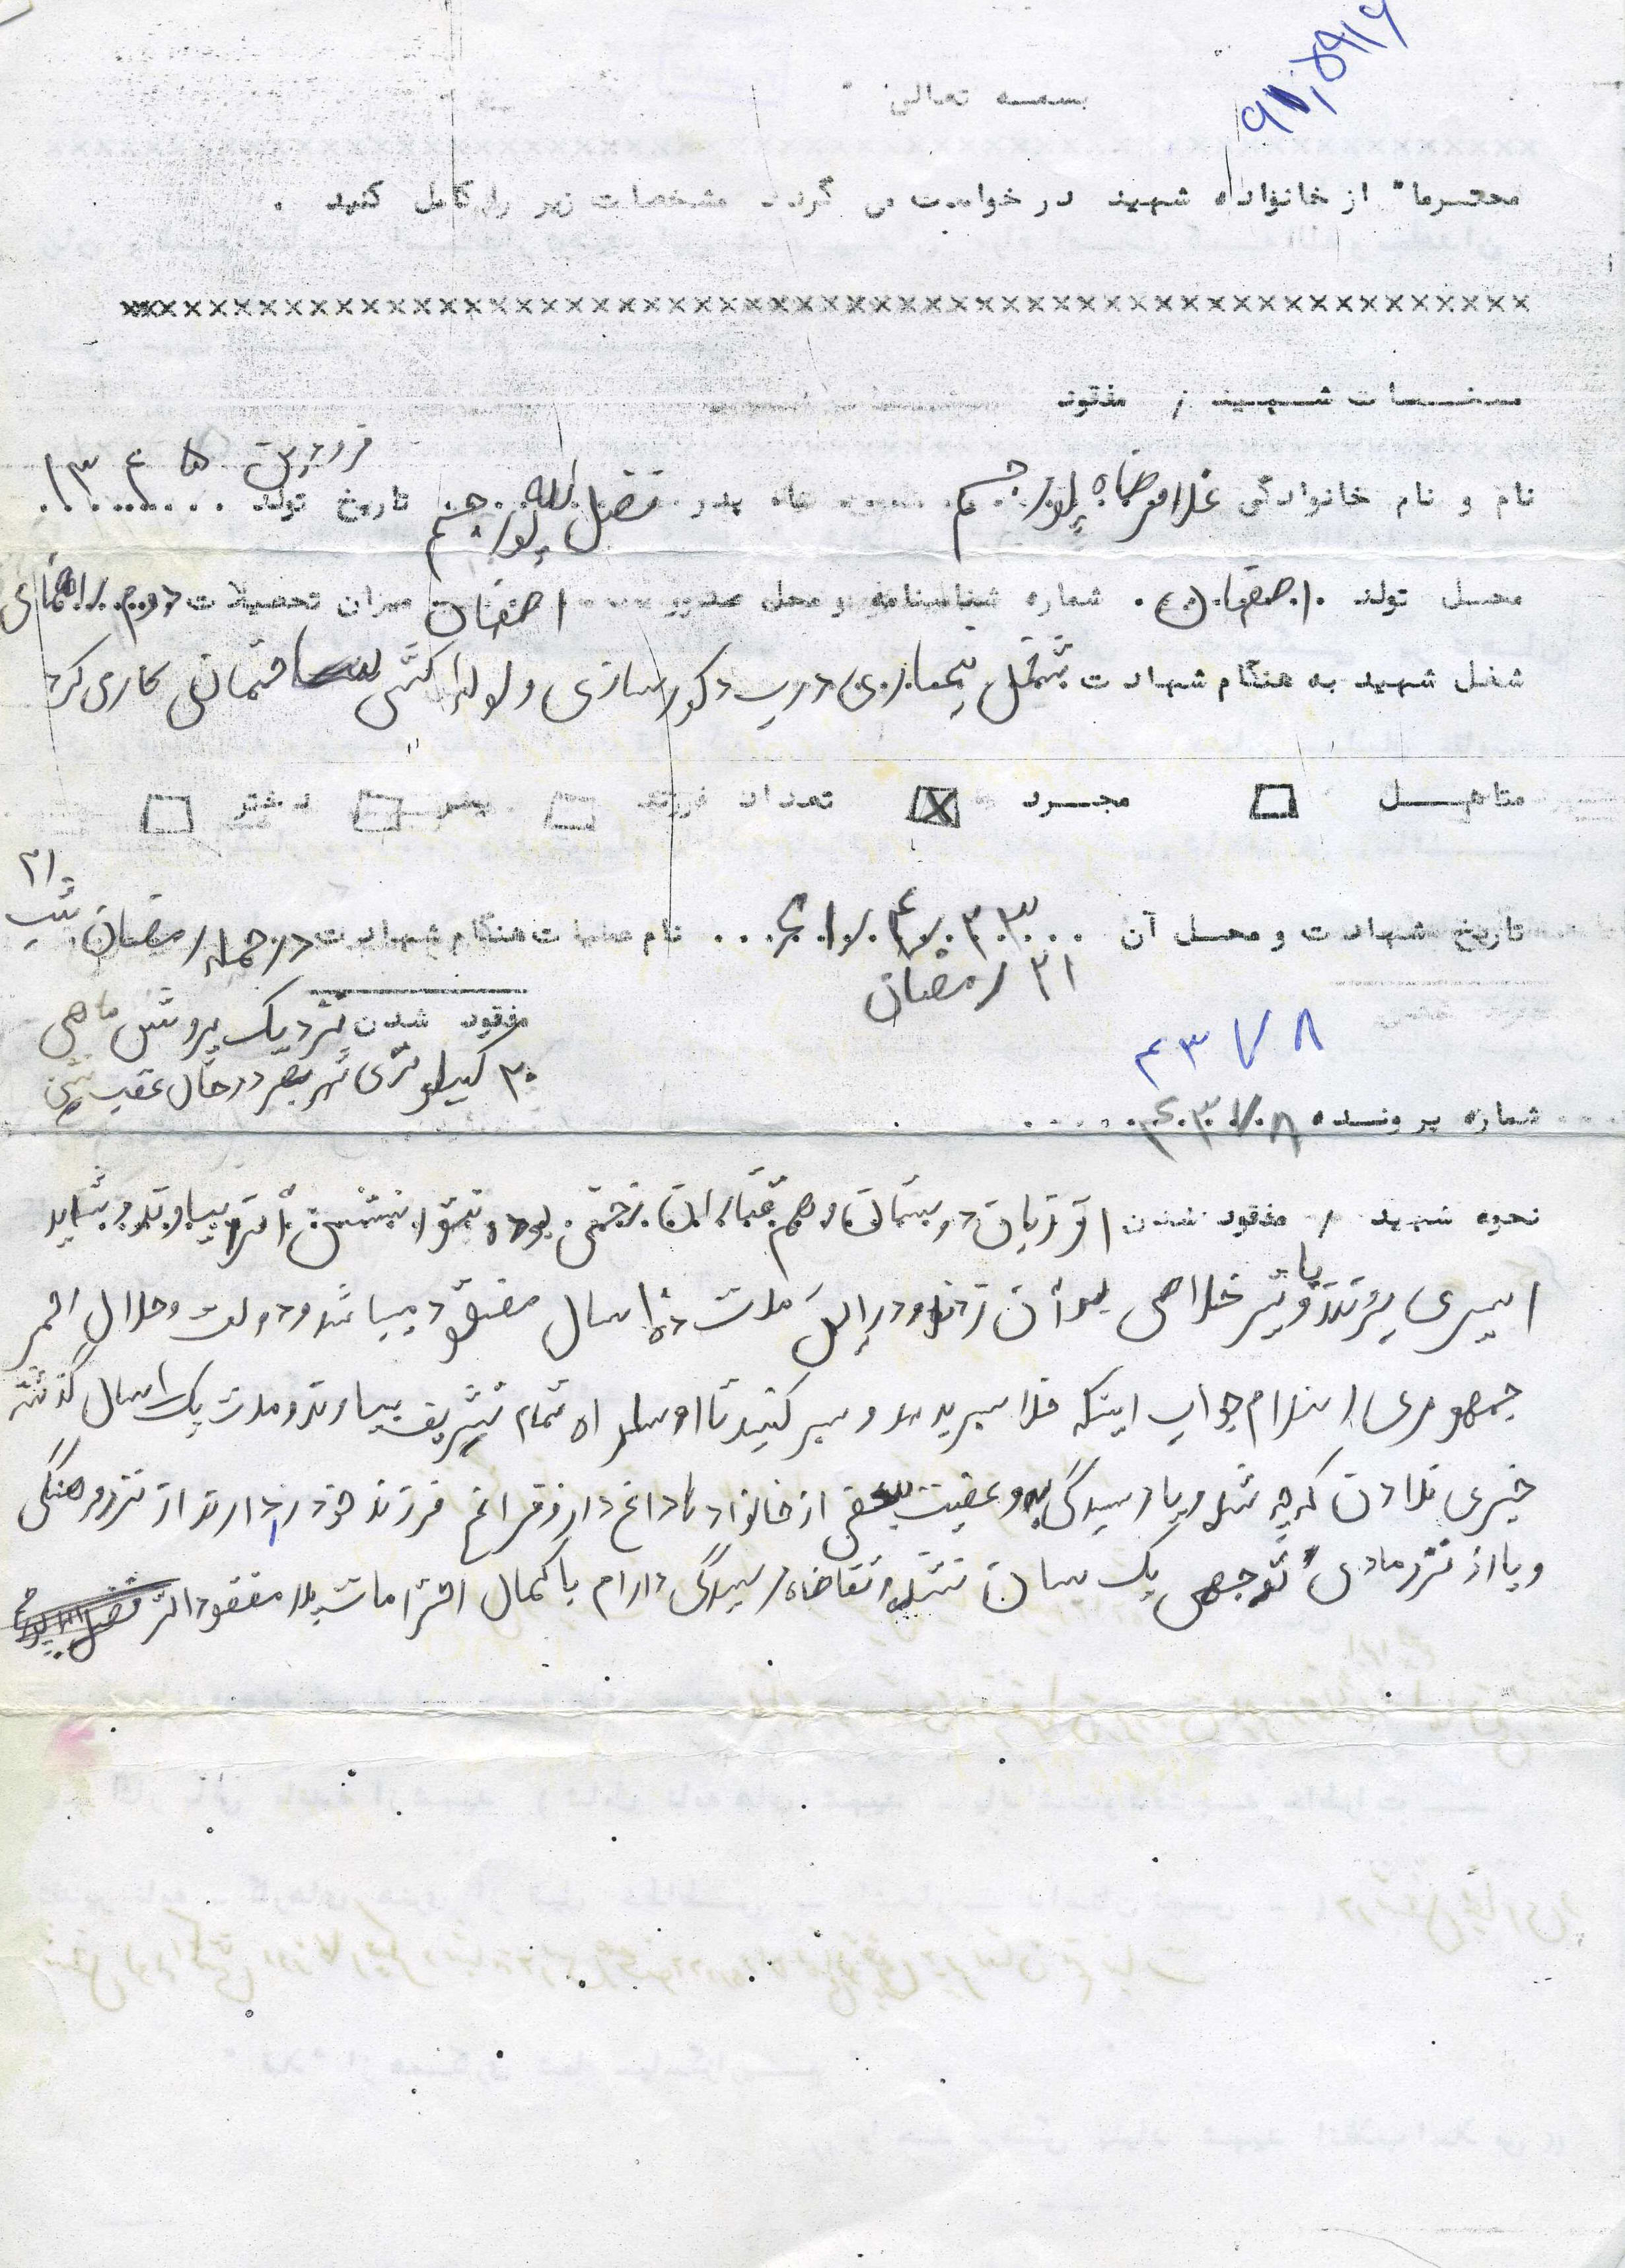 ۹۱۰۵۹۱۹
بسمه تعالی
محترما" از خانواده شهید درخواست می گردد مشخصات زیر را کامل کنید .
××××××××××××××××××××××××××××××××××××××××××××××××××××××
مشخصات شهید / مفقود
فروردین ۱۳۴۵
نام و نام خانوادگی غلامرضاه پورجم نام پدر فضل الله پورجم تاریخ تولد
محل تولد اصفهان شماره شناسنامه و محل صدور اصفهان میزان تحصیلات دوم راهنمای
شغل شهید به هنگام شهادت شغل دکورسازی و لوله کشی ساختمان کاری کرد
متاهل □ مجرد ☒ تعداد فرزند □ پسر □ دختر □
تاریخ شهادت و محل آن ۶۱/۴/۲۳ نام عملیات هنگام شهادت در حمله رمضان شب ۲۱
۲۱ رمضان
مفقود شدن نزدیک پرورش ماهی
۳۰ کیلو متری شهر بصر در حال عقب نشینی
۴۳۷۸
شماره پرونده ۴۳۷۸
نحوه شهید / مفقود شدن از زبان دوستان و هم قتاران زخمی بوده نتوانستن آنرا بیاورند و شاید
اسیری برند و یا تیر خلاصی به آن زدند و در این مدت ده سال مفقود میباشد و دولت و حلال احمر
جمهوری اسلام جواب اینکه سبر کنید تا تشریف بیاورند و مدت یک سال گذشته
خبری ندادن که چه شد و یا رسیدگی به وعضیت بعضی از خانواد ها داغ دار و فراغ فرزند خود را دارند از نزر فرهنگی
و یا از نزر مادی توجهی یک سان نشده تقاضاه رسیدگی دارم با کمال احترامات پدر مفقود الاثر فضل الله پورجم